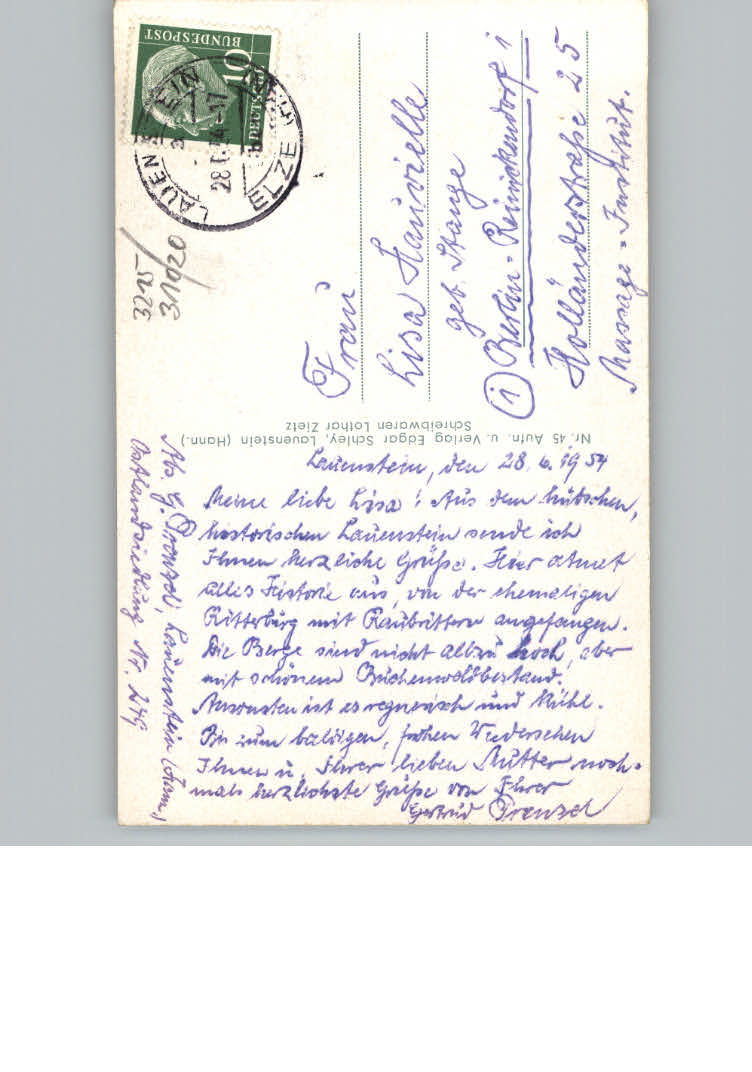 Lauenstein, den 28.6.1954
Meine liebe Lisa! Aus dem hübschen,
historischen Lauenstein sende ich
Ihnen herzliche Grüße. Hier atmet
alles Historie aus, von der ehemaligen
Ritterburg mit Raubrittern angefangen.
Die Berge sind nicht allzu hoch, aber
mit schönem Buchenwaldbestand.
Ansonsten ist es regnerisch und kühl.
Bis zum baldigen, frohen Wiedersehen
Ihnen u. Ihrer lieben Mutter noch-
mals herzlichste Grüße von Ihrer
Gertrud Prenzel
Abs. G. Prenzel, Lauenstein (Hann.)
Ostlandsiedlung Nr. 249
Nr. 45 Aufn. u. Verlag Edgar Schley, Lauenstein (Hann.)
Schreibwaren Lothar Zietz
Frau
Lisa Hauvielle
geb. Stange
(1) Berlin-Reinickendorf 1
Holländerstraße 25
Massage-Institut.
DEUTSCHE
BUNDESPOST
10
LAUENSTEIN
28
-17
ELZE
31020